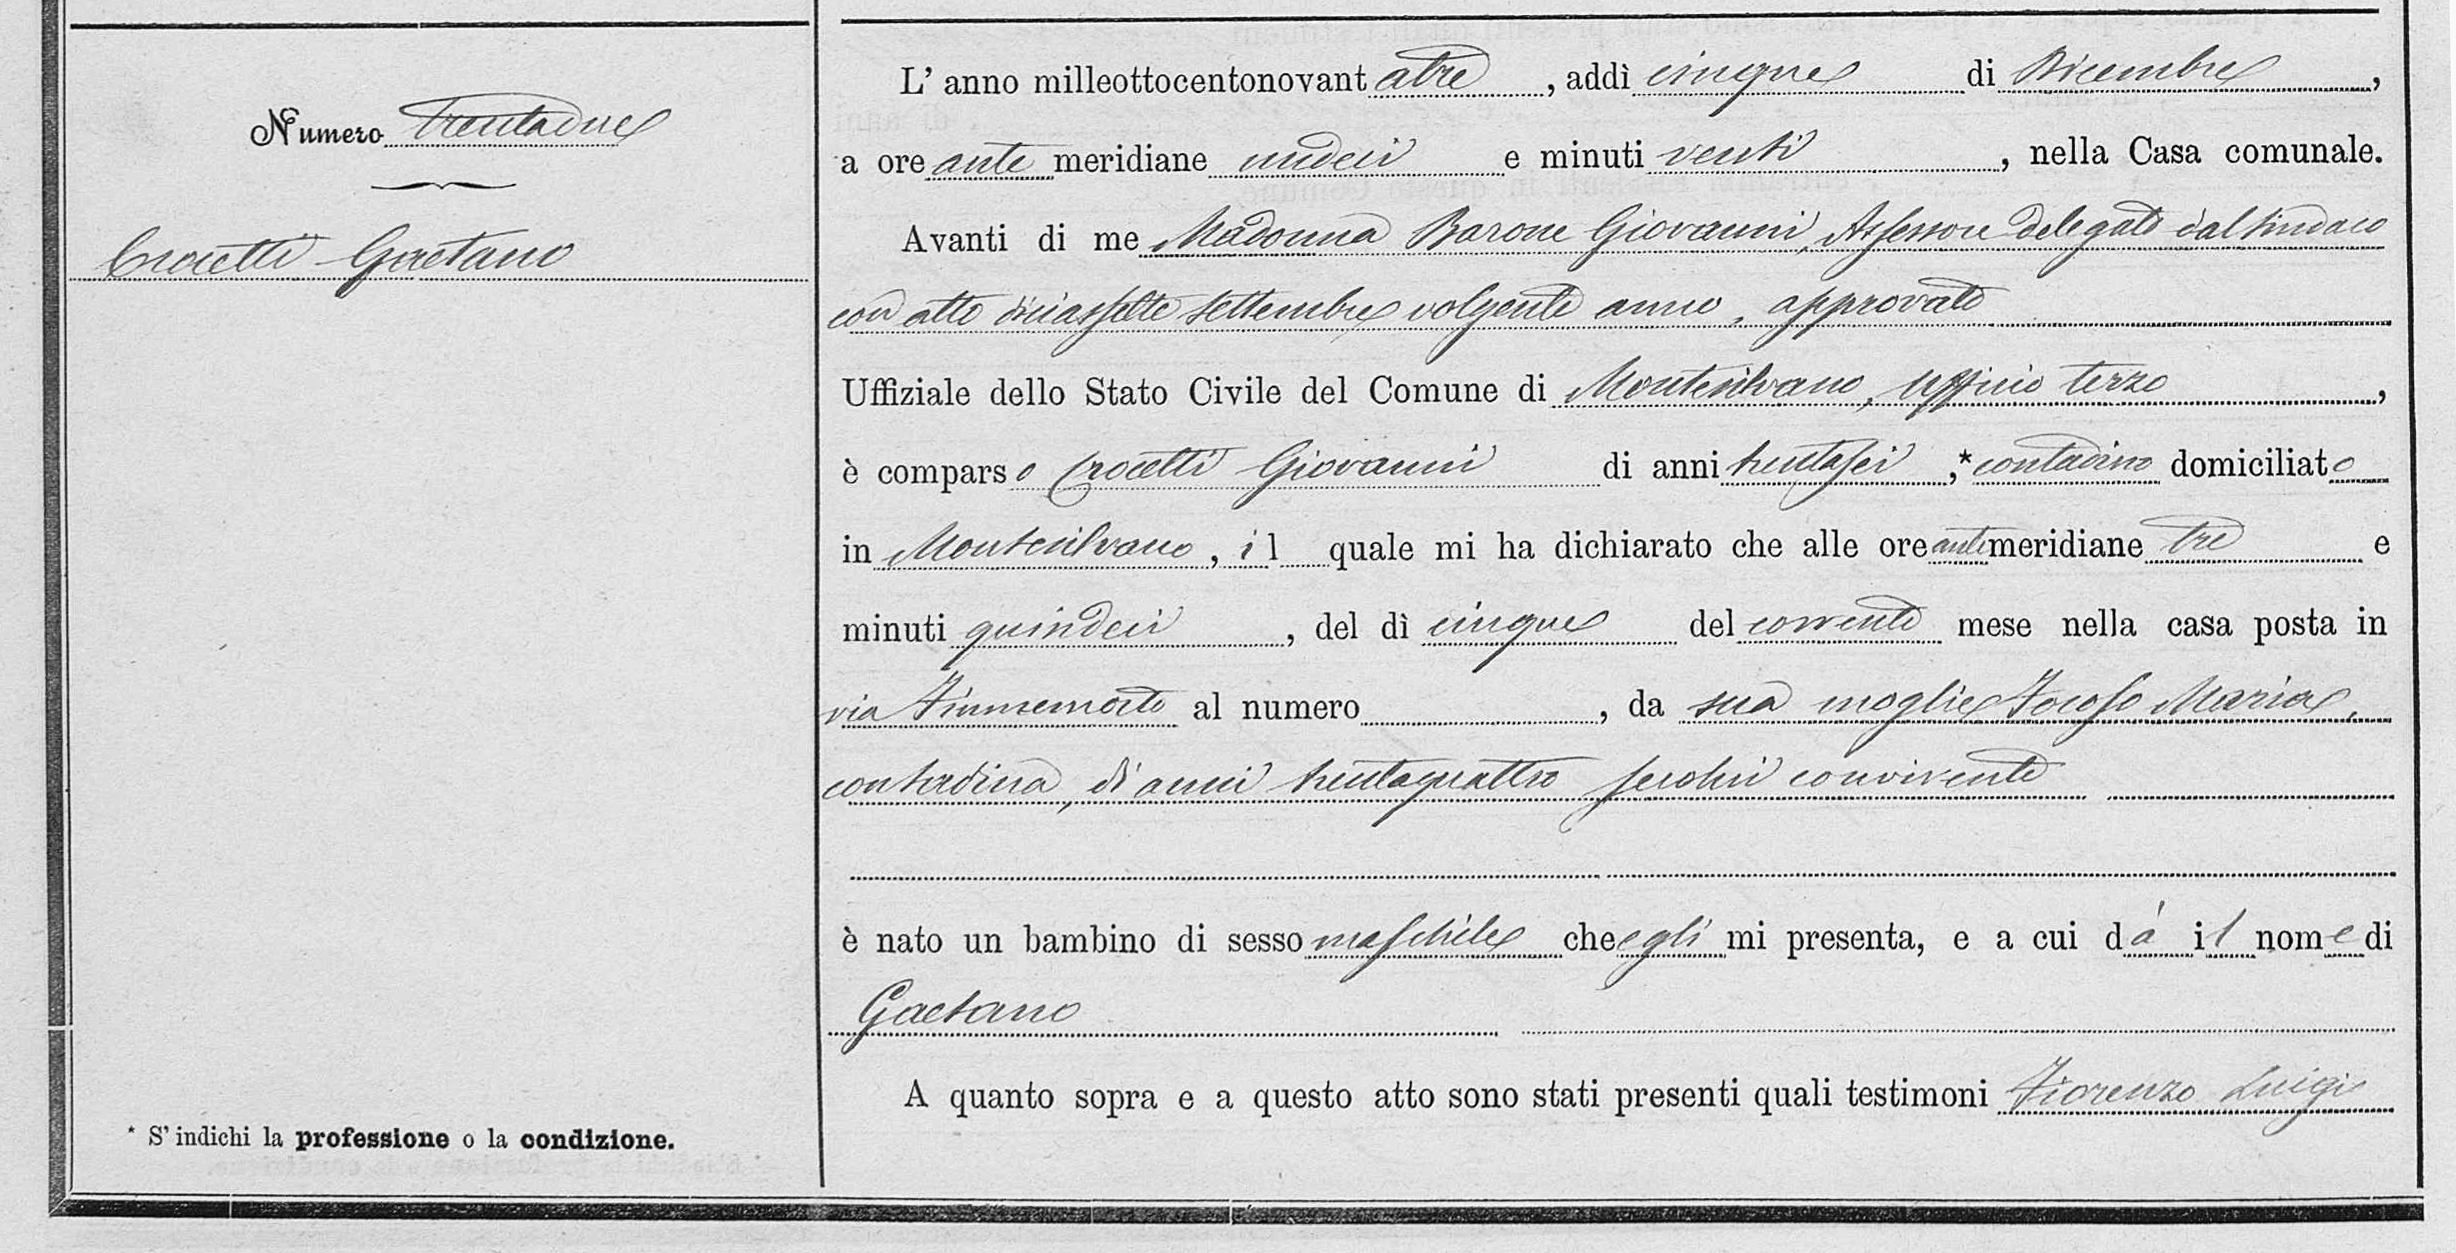 Numero trentadue
Crocetti Gaetano
* S'indichi la professione o la condizione.
L'anno milleottocentonovantatre, addì cinque di Dicembre,
a ore ante meridiane undeci e minuti venti, nella Casa comunale.
Avanti di me Madonna Barone Giovanni, Assessore delegato dal Sindaco
con atto diciassette Settembre volgente anno, approvato
Uffiziale dello Stato Civile del Comune di Montesilvano, Ufficio terzo,
è comparso Crocetti Giovanni di anni trentasei,* contadino domiciliato
in Montesilvano, il quale mi ha dichiarato che alle ore antimeridiane tre e
minuti quindeci, del dì cinque del corrente mese nella casa posta in
via Fiumemorto al numero, da sua moglie Maria,
contadina, di anni trentaquattro seco lui convivente
è nato un bambino di sesso maschile che egli mi presenta, e a cui dà il nome di
Gaetano
A quanto sopra e a questo atto sono stati presenti quali testimoni Fiorenzo Luigi